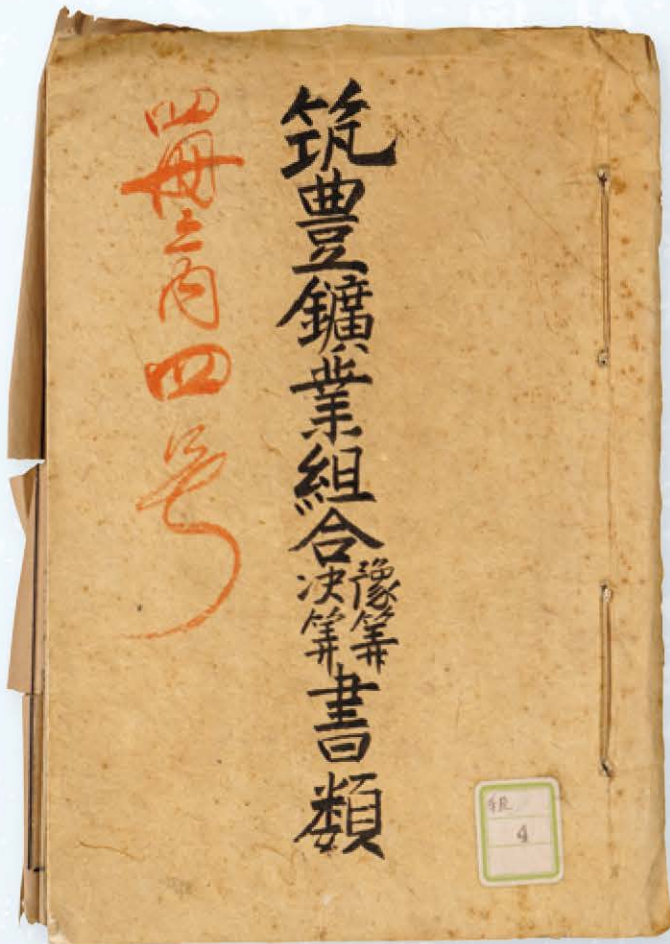 筑豊鑛業組合豫筭决筭書類
四冊之内四号
組
4